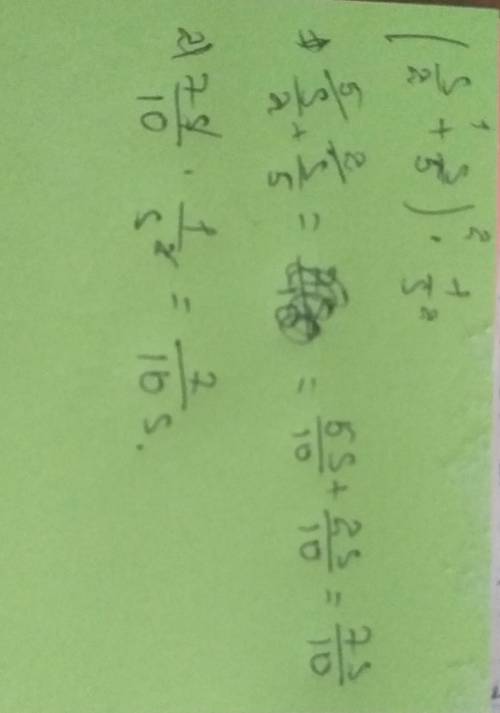 (s/2 + s/5) · 1/s²
1) s/2 + s/5 = = 5s/10 + 2s/10 = 7s/10
2) 7s/10 · 1/s² = 7/10s.